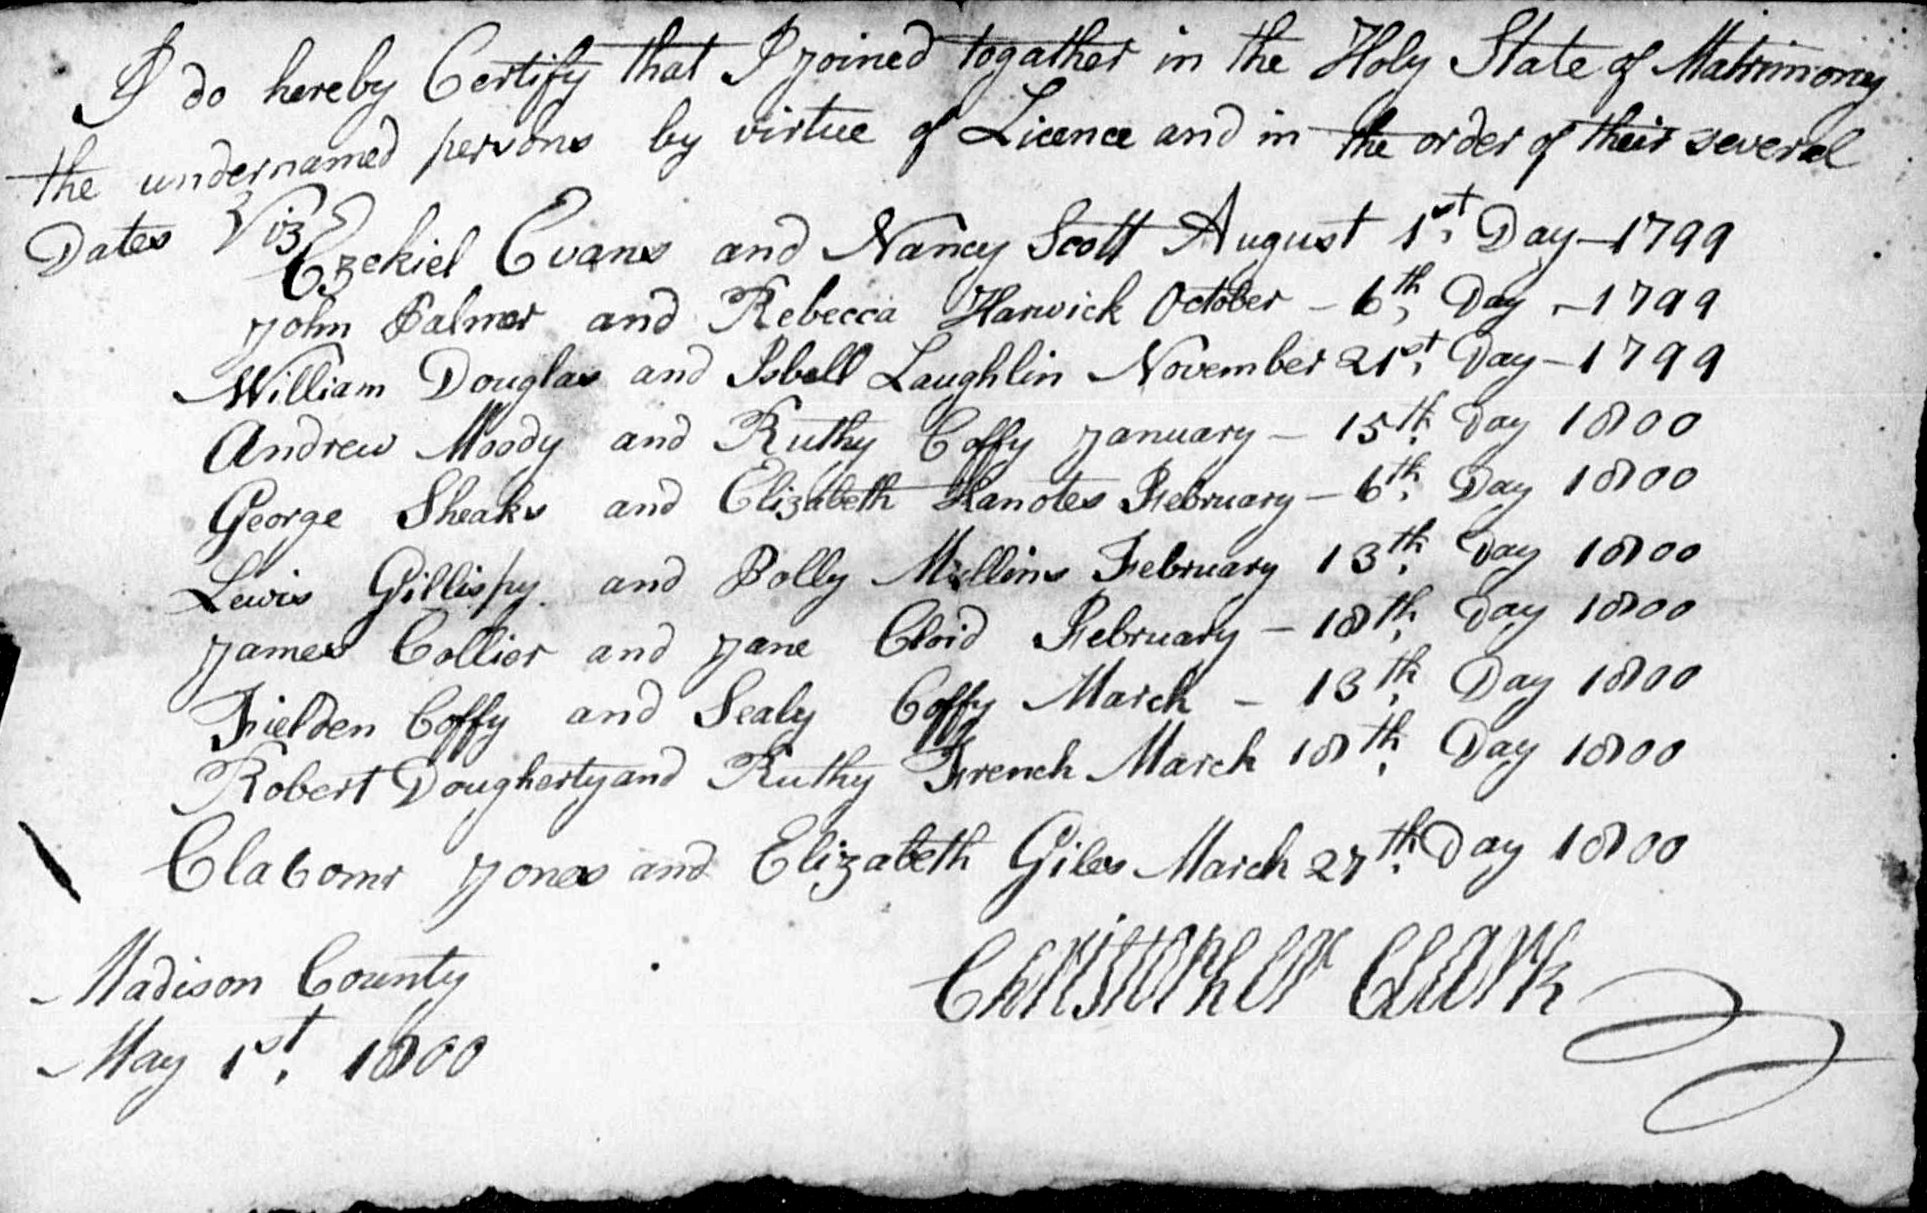 I do hereby Certify that I joined togather in the Holy State of Matrimony
the undernamed persons by virtue of Licence and in the order of their several
Dates Viz
Ezekiel Evans and Nancy Scott August 1st, Day - 1799
John Palmer and Rebecca Harwick October - 6th, Day - 1799
William Douglas and Isbell Laughlin November 21st, Day - 1799
Andrew Moody and Ruthy Coffy January - 15th, Day 1800
George Sheaks and Elizabeth Hanotes February - 6th, Day 1800
Lewis Gillispy and Polly Mullins February 13th, Day 1800
James Collier and Jane Cloid February - 18th, Day 1800
Fielden Coffy and Sealy Coffy March - 13th, Day 1800
Robert Dougherty and Ruthy French March 18th, Day 1800
Clabomr Jones and Elizabeth Giles March 27th, Day 1800
Christopher Clark
Madison County
May 1st, 1800